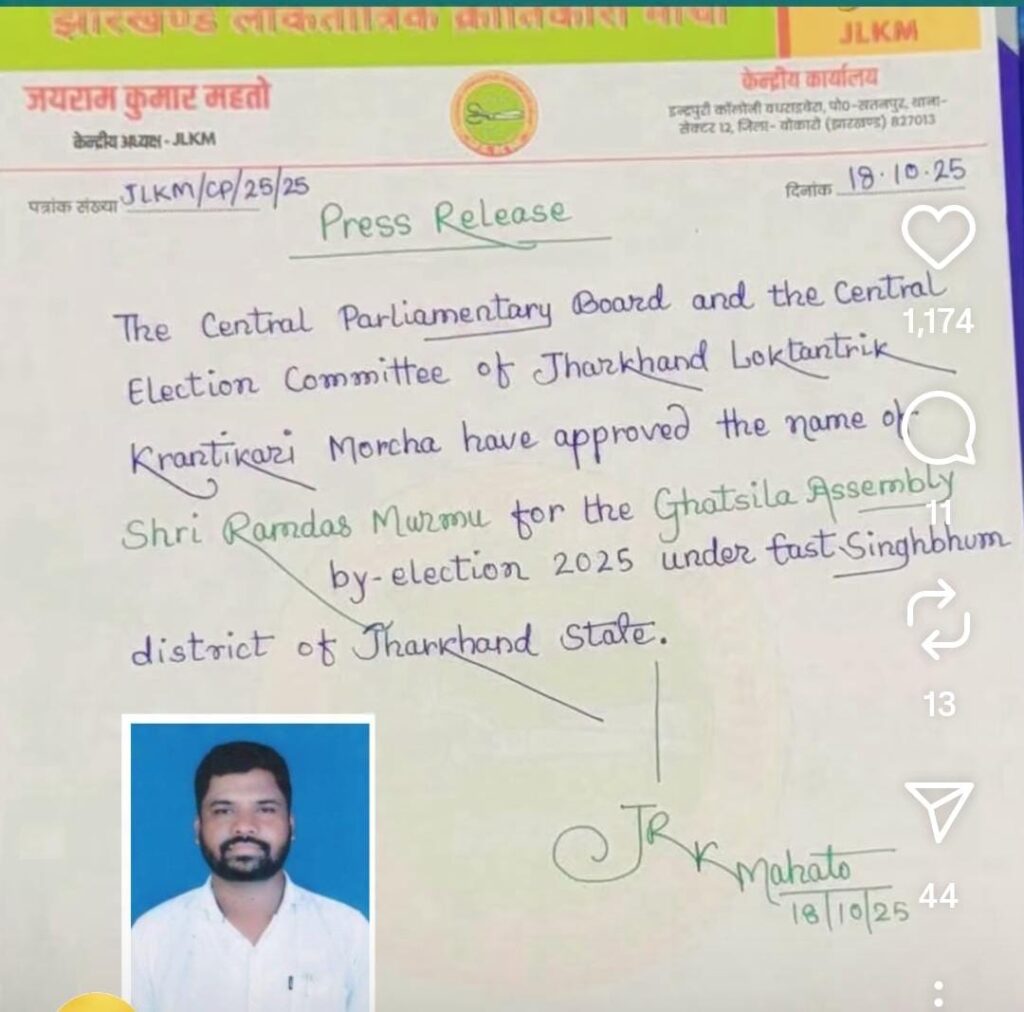 झारखण्ड लोकतांत्रिक क्रांतिकारी मोर्चा
JLKM
जयराम कुमार महतो
केन्द्रीय अध्यक्ष - JLKM
केन्द्रीय कार्यालय
इन्द्रपुरी कॉलोनी चपराडबेरा, पो0-सतनपुर, थाना-
सेक्टर 12, जिला- बोकारो (झारखण्ड) 827013
पत्रांक संख्या JLKM/CP/25/25
दिनांक 18.10.25
Press Release
The Central Parliamentary Board and the Central
Election Committee of Jharkhand Loktantrik
Krantikari Morcha have approved the name of
Shri Ramdas Murmu for the Ghatsila Assembly
by-election 2025 under East Singhbhum
district of Jharkhand State.
JRK Mahato
18/10/25
1,174
11
13
44